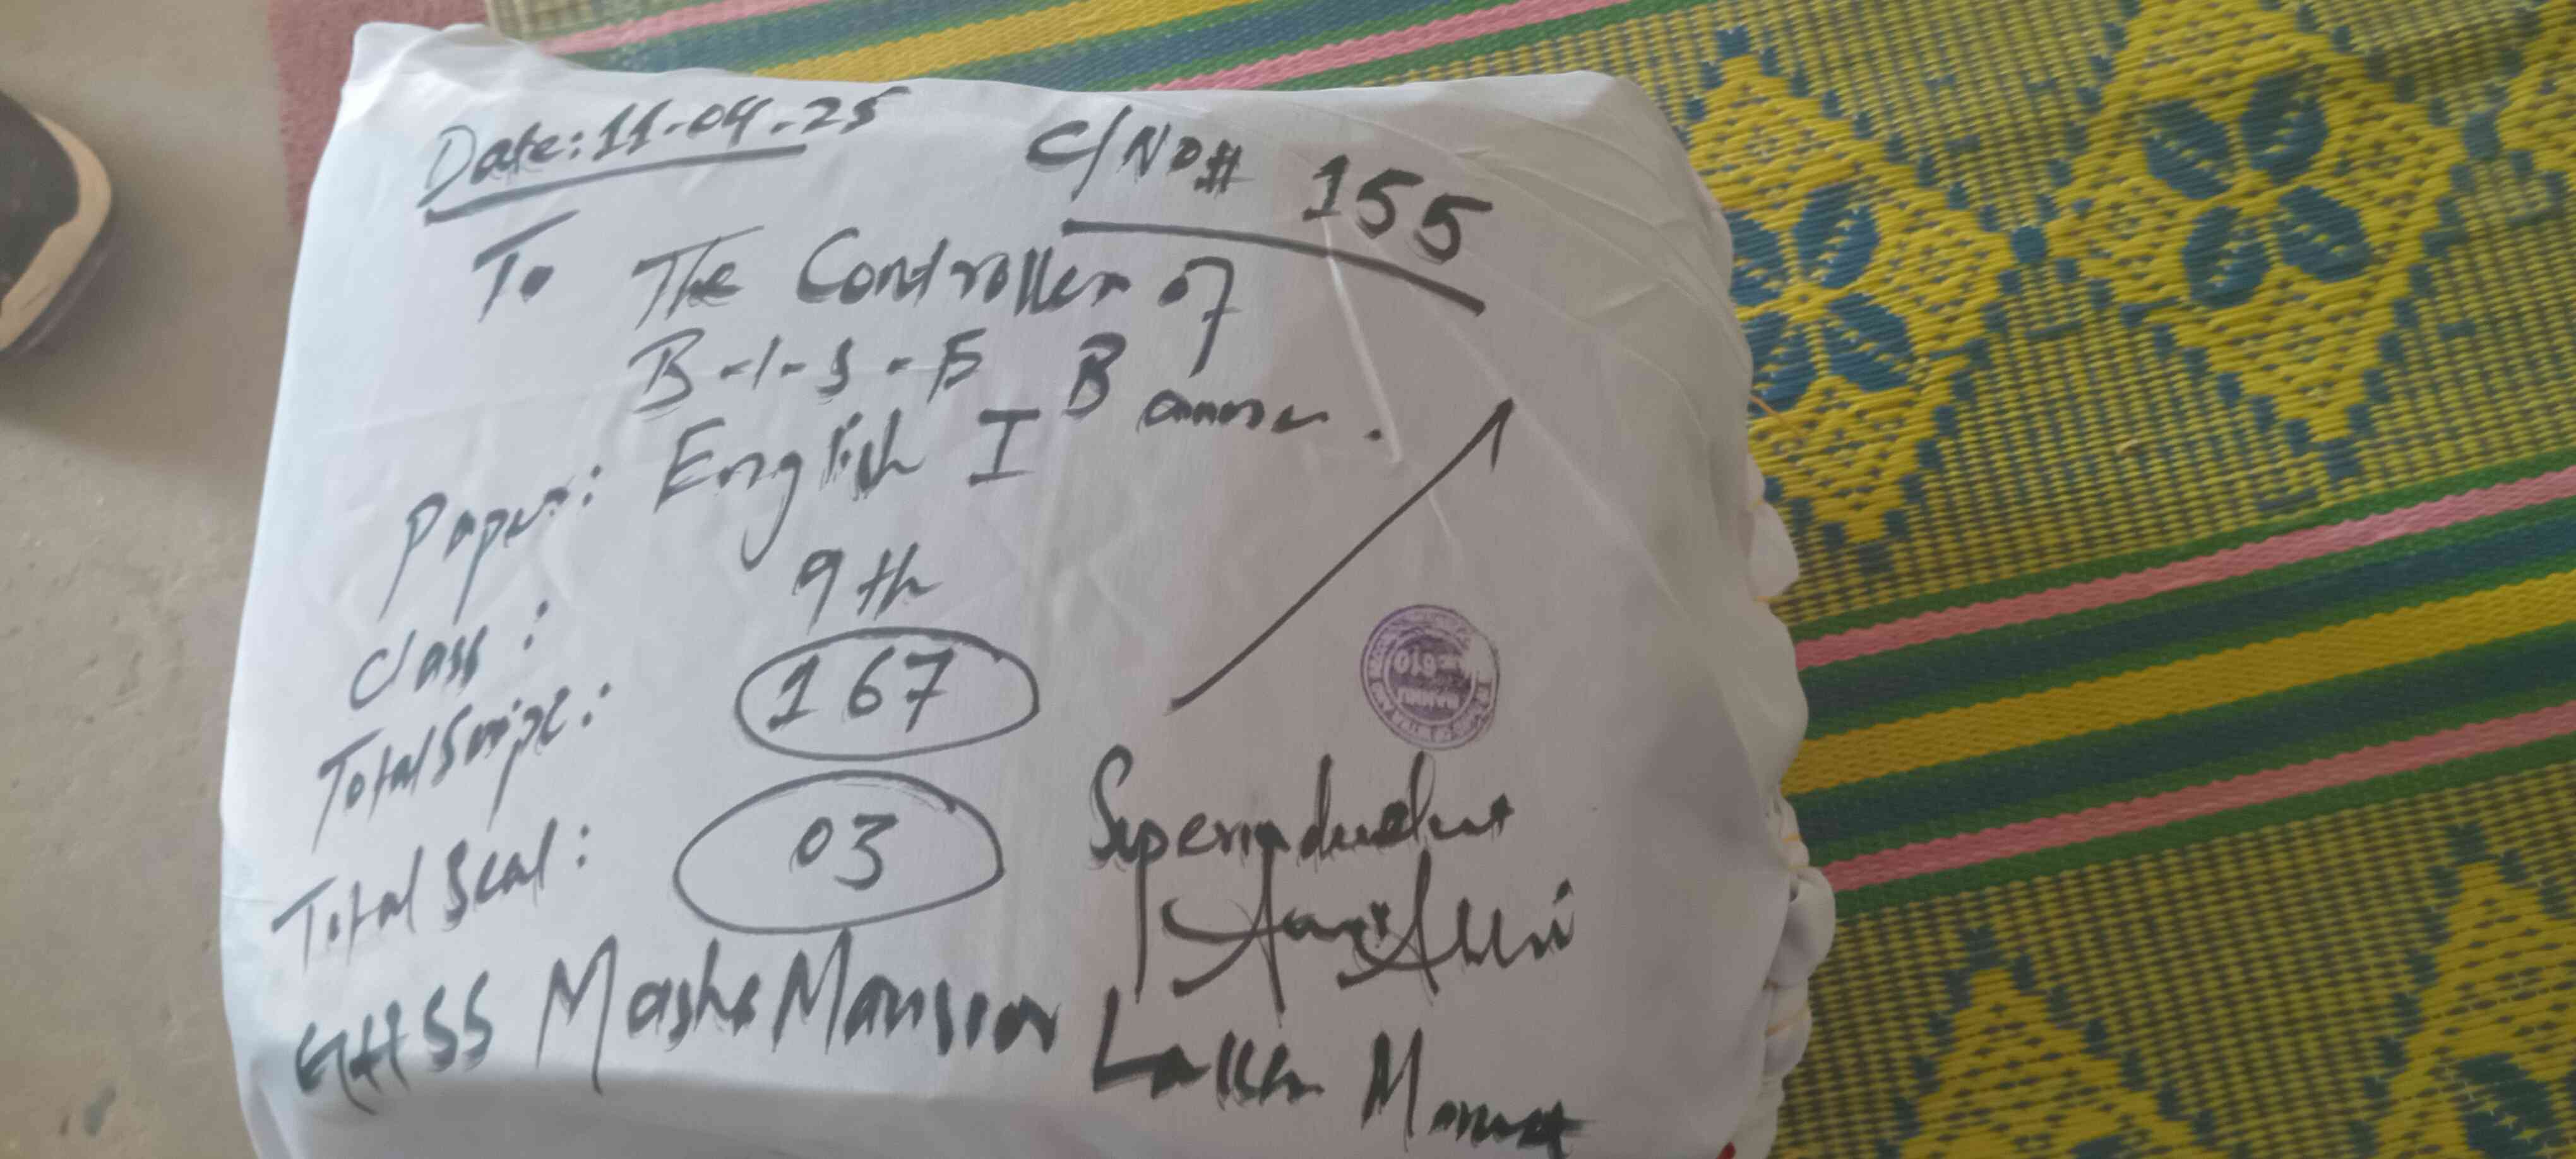 Date: 11.04.25
C/No# 155
To The Controller of
B-I-S-E Bannu.
Paper: English I
Class: 9th
Total Script: 167
Total Seal: 03
Superindendent
GHSS Masha Mansoor Lakki Marwat